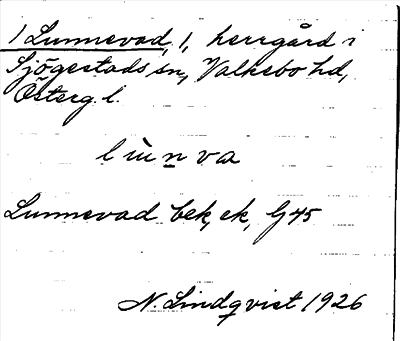 1 Lunnevad, 1, herrgård i
Sjögestads sn, Valkebo hd,
Österg. l.
lùn̲va
Lunnevad bek, ek, G 45
N. Lindqvist 1926